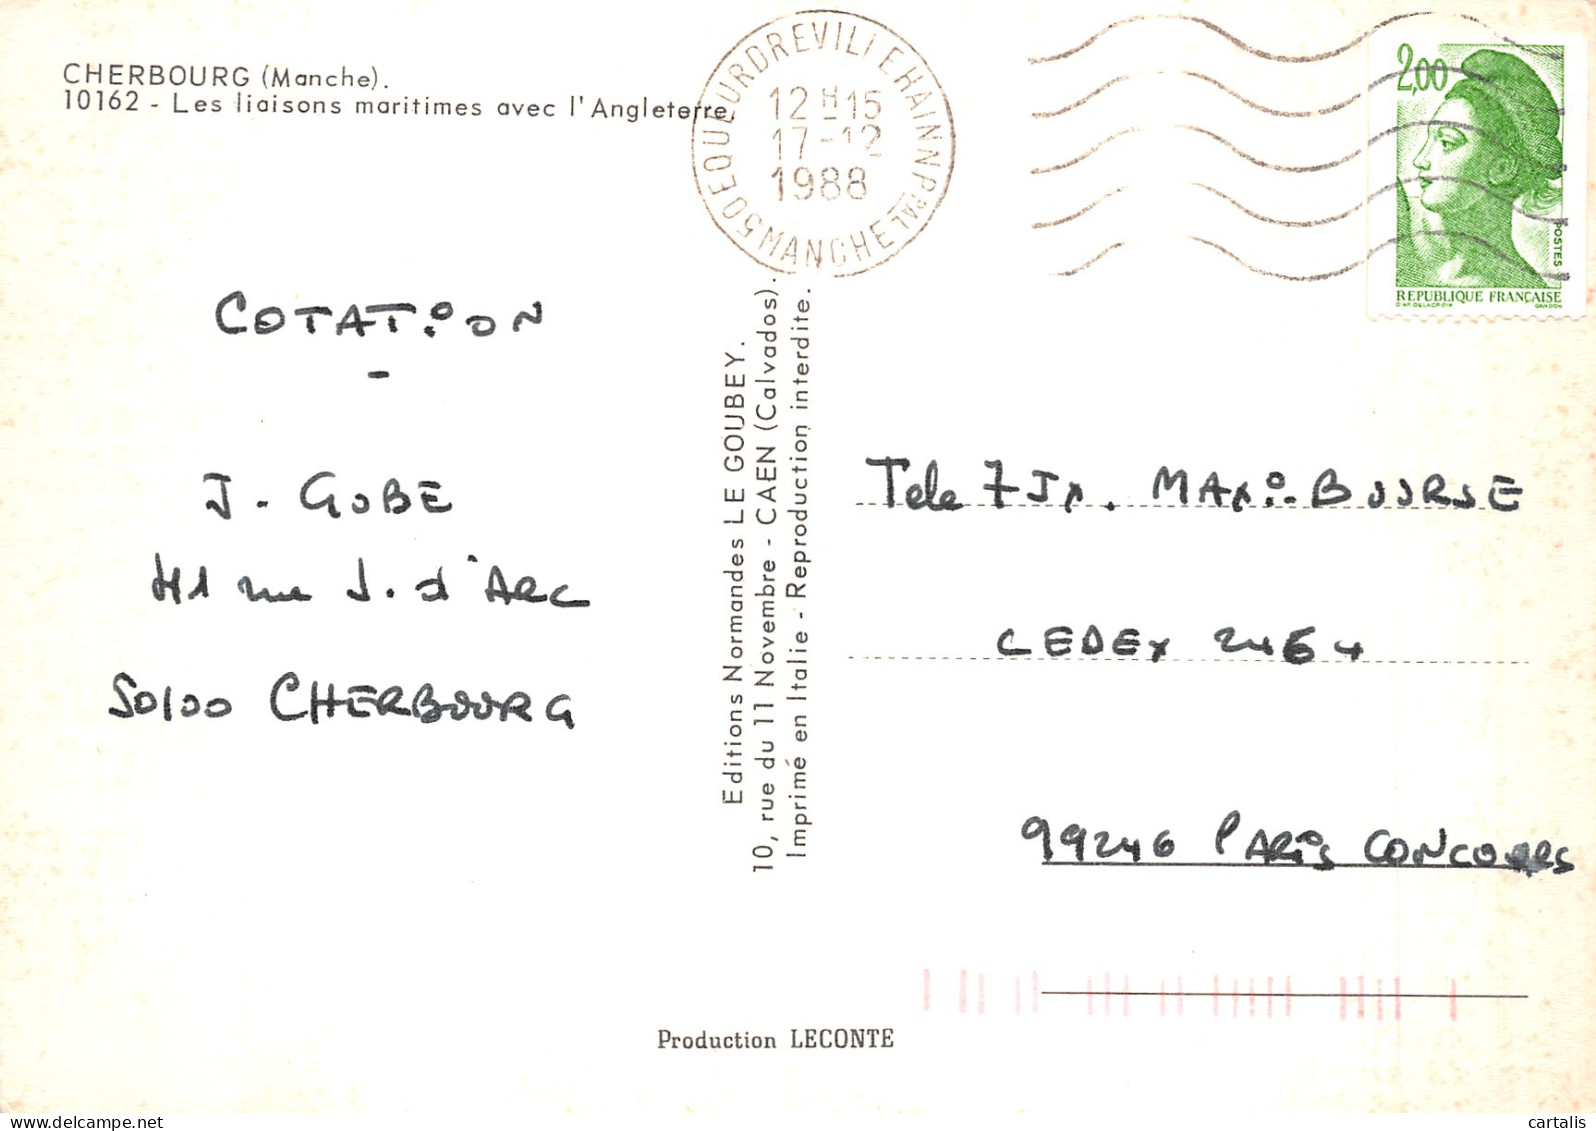 CHERBOURG (Manche).
10162 - Les liaisons maritimes avec l'Angleterre.
50 EQUEURDREVILLEHAINNEVILLE PPAL MANCHE
12 H 15
17-12
1988
2,00
POSTES
REPUBLIQUE FRANÇAISE
D'AP. DELACROIX GANDON
COTATION
-
J. GOBE
41 rue J. d'ARC
50100 CHERBOURG
Editions Normandes LE GOUBEY.
10, rue du 11 Novembre - CAEN (Calvados).
Imprimé en Italie - Reproduction interdite.
Tele 7 Jx. MAXI-BOURSE
CEDEX 2464
99246 PARIS CONCOURS
Production LECONTE
www.delcampe.net
cartalis